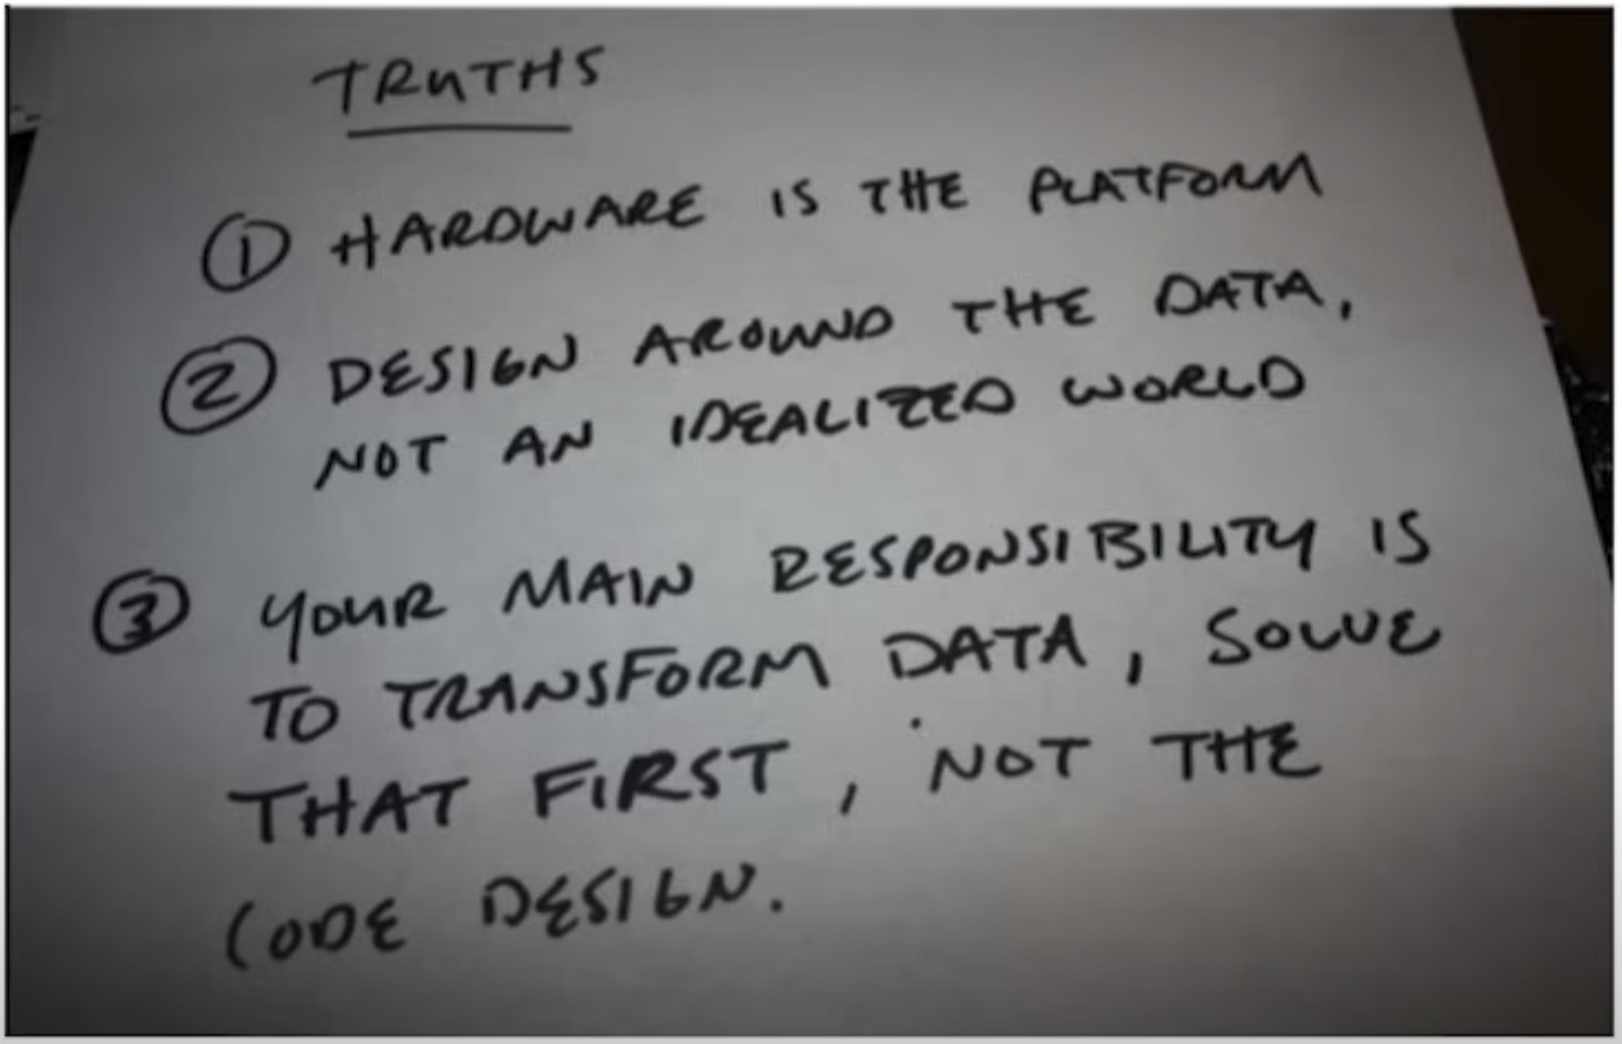 TRUTHS
① HARDWARE IS THE PLATFORM
② DESIGN AROUND THE DATA,
NOT AN IDEALIZED WORLD
③ YOUR MAIN RESPONSIBILITY IS
TO TRANSFORM DATA, SOLVE
THAT FIRST, NOT THE
CODE DESIGN.